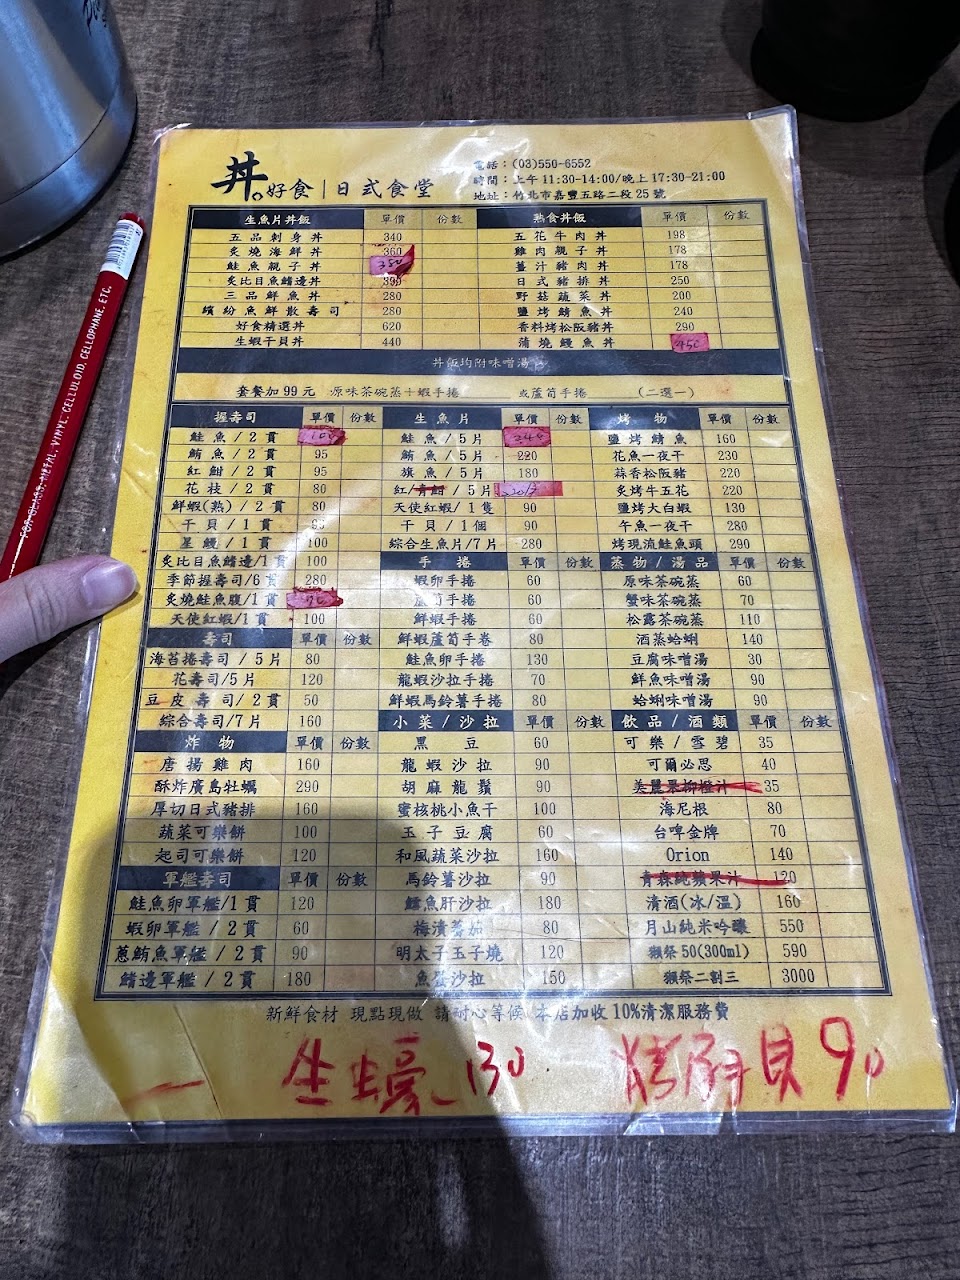 丼。好食|日式食堂
電話：(03)550-6552
時間：上午11:30-14:00/晚上17:30-21:00
地址：竹北市嘉豐五路二段25號
生魚片丼飯 單價 份數 熟食丼飯 單價 份數
五品刺身丼 340 五花牛肉丼 198
炙燒海鮮丼 360 雞肉親子丼 178
鮭魚親子丼 350 薑汁豬肉丼 178
炙比目魚鰭邊丼 390 日式豬排丼 250
三品鮮魚丼 280 野菇蔬菜丼 200
繽紛魚鮮散壽司 280 鹽烤鯖魚丼 240
好食精選丼 620 香料烤松阪豬丼 290
生蝦干貝丼 440 蒲燒鰻魚丼 450
丼飯均附味噌湯
套餐加99元 原味茶碗蒸+蝦手捲 或蘆筍手捲 (二選一)
握壽司 單價 份數 生魚片 單價 份數 烤物 單價 份數
鮭魚/2貫 100 鮭魚/5片 240 鹽烤鯖魚 160
鮪魚/2貫 95 鮪魚/5片 220 花魚一夜干 230
紅魽/2貫 95 旗魚/5片 180 蒜香松阪豬 220
花枝/2貫 80 紅/青魽/5片 炙烤牛五花 220
鮮蝦(熟)/2貫 80 天使紅蝦/1隻 90 鹽烤大白蝦 130
干貝/1貫 95 干貝/1個 90 午魚一夜干 280
星鰻/1貫 100 綜合生魚片/7片 280 烤現流鮭魚頭 290
炙比目魚鰭邊/1貫 100 手捲 單價 份數 蒸物/湯品 單價 份數
季節握壽司/6貫 280 蝦卵手捲 60 原味茶碗蒸 60
炙燒鮭魚腹/1貫 蘆筍手捲 60 蟹味茶碗蒸 70
天使紅蝦/1貫 100 鮮蝦手捲 60 松露茶碗蒸 110
壽司 單價 份數 鮮蝦蘆筍手卷 80 酒蒸蛤蜊 140
海苔捲壽司/5片 80 鮭魚卵手捲 130 豆腐味噌湯 30
花壽司/5片 120 龍蝦沙拉手捲 70 鮮魚味噌湯 90
豆皮壽司/2貫 50 鮮蝦馬鈴薯手捲 80 蛤蜊味噌湯 90
綜合壽司/7片 160 小菜/沙拉 單價 份數 飲品/酒類 單價 份數
炸物 單價 份數 黑豆 60 可樂/雪碧 35
唐揚雞肉 160 龍蝦沙拉 90 可爾必思 40
酥炸廣島牡蠣 290 胡麻龍鬚 90 美麗果柳橙汁 35
厚切日式豬排 160 蜜核桃小魚干 100 海尼根 80
蔬菜可樂餅 100 玉子豆腐 60 台啤金牌 70
起司可樂餅 120 和風蔬菜沙拉 160 Orion 140
軍艦壽司 單價 份數 馬鈴薯沙拉 90 青森純蘋果汁 120
鮭魚卵軍艦/1貫 120 鱈魚肝沙拉 180 清酒(冰/溫) 160
蝦卵軍艦/2貫 60 梅漬蕃茄 80 月山純米吟釀 550
蔥鮪魚軍艦/2貫 90 明太子玉子燒 120 獺祭50(300ml) 590
鰭邊軍艦/2貫 180 魚蛋沙拉 150 獺祭二割三 3000
新鮮食材 現點現做 請耐心等候 本店加收10%清潔服務費
生蠔 130 烤扇貝 90
FOR GLASS, METAL, VINYL, CELLULOID, CELLOPHANE, ETC.